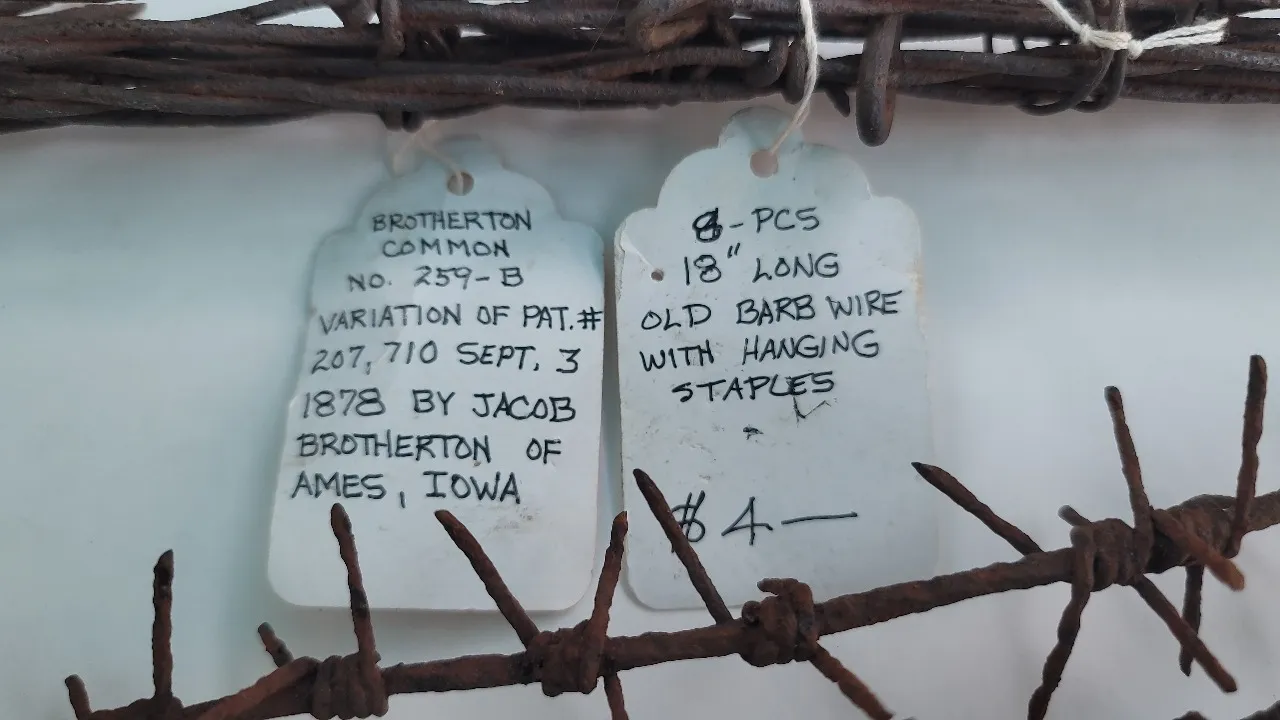 BROTHERTON
COMMON
NO. 259-B
VARIATION OF PAT.#
207,710 SEPT. 3
1878 BY JACOB
BROTHERTON OF
AMES, IOWA
-PCS
18" LONG
OLD BARB WIRE
WITH HANGING
STAPLES
$4—